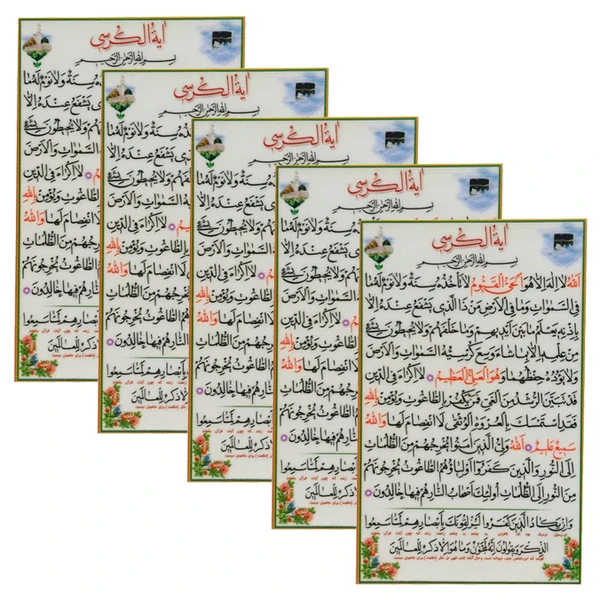 آیة الکرسی
بسم الله الرحمن الرحیم
اَللّٰهُ لا اِلهَ اِلاّ هُوَ اَلحَیُّ القَیُّومُ لا تَأخُذُهُ سِنَةٌ وَلا نَومٌ لَهُ ما
فِی السَّمٰواتِ وَما فِی الاَرضِ مَن ذَا الَّذی یَشفَعُ عِندَهُ اِلاّ
بِاِذنِهِ یَعلَمُ ما بَینَ اَیدیهِم وَما خَلفَهُم وَلا یُحیطُونَ بِشَیءٍ
مِن عِلمِهِ اِلاّ بِماشاءَ وَسِعَ کُرسِیُّهُ السَّمٰواتِ وَالاَرضَ
وَلا یَؤدُهُ حِفظُهُما وَهُوَ العَلِیُّ العَظیمُ لا اِکراهَ فِی الدّینِ
قَد تَبَیَّنَ الرُّشدُ مِنَ الغَیِّ فَمَن یَکفُر بِالطّاغُوتِ وَیُؤمِن بِاللهِ
فَقَدِ استَمسَکَ بِالعُروَةِ الوُثقی لاَ انفِصامَ لَها وَاللهُ
سَمیعٌ عَلیمٌ اَللهُ وَلِیُّ الَّذینَ امَنُوا یُخرِجُهُم مِنَ الظُّلُماتِ
اِلَی النُّورِ وَالَّذینَ کَفَرُوا اَولِیاؤُهُمُ الطّاغُوتُ یُخرِجُونَهُم
مِنَ النُّورِ اِلَی الظُّلُماتِ اُولئِکَ اَصحابُ النّارِ هُم فیها خالِدُونَ
وَاِن یَکادُ الَّذینَ کَفَرُوا لَیُزلِقُونَکَ بِاَبصارِهِم لَمّا سَمِعُوا
الذِّکرَ وَیَقُولُونَ اِنَّهُ لَمَجنُونٌ وَما هُوَ اِلاّ ذِکرٌ لِلعالَمینَ